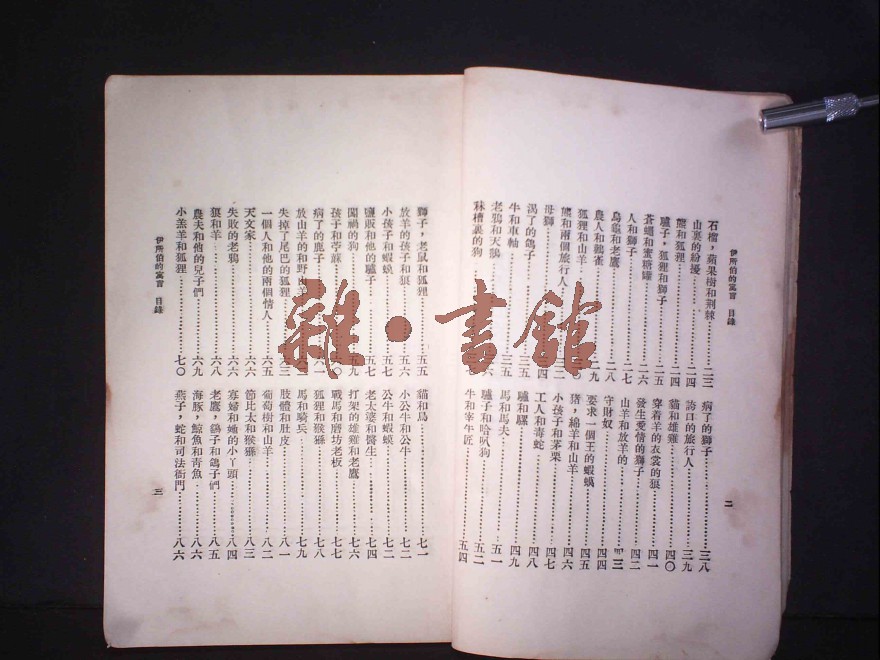 伊所伯的寓言　目錄
石榴，蘋果樹和荆棘……二三
山裏的紛擾……二四
熊和狐狸……二四
驢子，狐狸和獅子……二五
蒼蠅和蜜糖罐……二六
人和獅子……二七
烏龜和老鷹……二八
農人和鸛雀……二九
狐狸和山羊……
熊和兩個旅行人……
母獅……
渴了的鴿子……三五
牛和車軸……三五
老鴉和天鵝……
秣槽裏的狗……
病了的獅子……三八
誇口的旅行人……三九
貓和雄雞……四〇
穿着羊的衣裳的狼……四一
發生愛情的獅子……四二
山羊和放羊的……四三
守財奴……四四
要求一個王的蝦蟆……四五
豬，綿羊和山羊……四六
小孩子和茅栗……四七
工人和毒蛇……四八
驢和騾……四九
馬和馬夫……五一
驢子和哈叭狗……五二
牛和宰牛匠……五四
二
獅子，老鼠和狐狸……五五
放羊的孩子和狼……五六
小孩子和蝦蟆……五七
鹽販和他的驢子……五七
闖禍的狗……五九
孩子和苧蔴……六〇
病了的鹿子……六一
放山羊的和野山羊……
失掉了尾巴的狐狸……
一個人和他的兩個情人……六五
天文家……六六
失敗的老鴉……六六
狼和羊……六八
農夫和他的兒子們……六九
小羔羊和狐狸……七〇
貓和鳥……七一
小公牛和公牛……七二
公牛和蝦蟆……七二
老太婆和醫生……七四
打架的雄雞和老鷹……七六
戰馬和磨坊老板……七七
狐狸和猴猻……七八
馬和騎兵……七九
肢體和肚皮……八一
葡萄樹和山羊……八二
節比太和猴猻……八三
寡婦和她的小丫頭……八四
老鷹，鷂子和鴿子們……八五
海豚，鯨魚和青魚……八六
燕子，蛇和司法衙門……八六
伊所伯的寓言　目錄
三
雜·書館